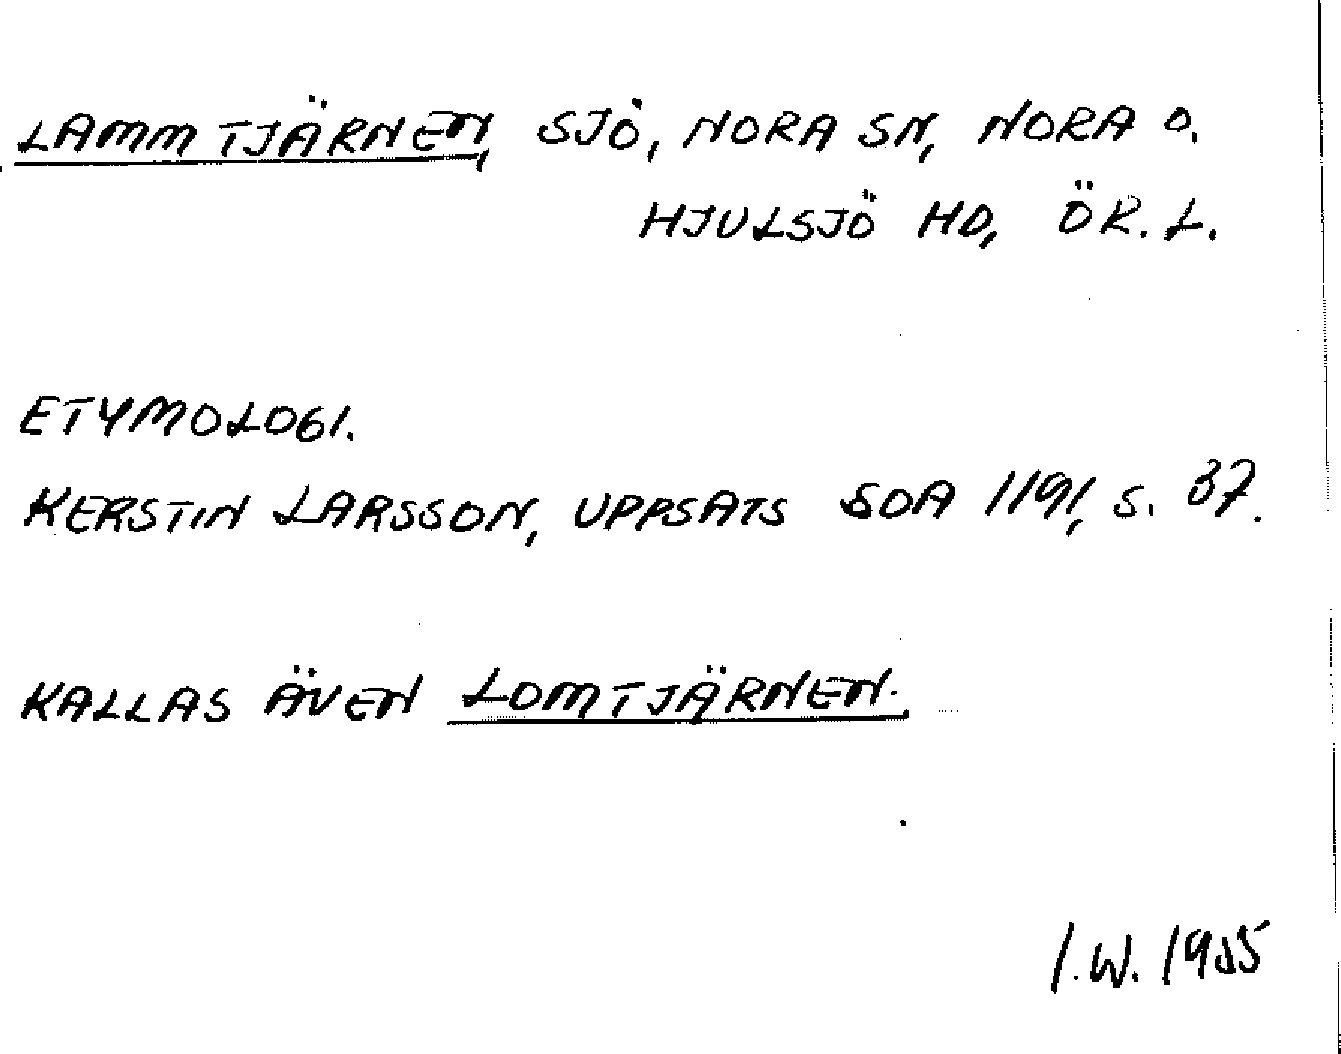 LAMMTJÄRNEN, SJÖ, NORA SN, NORA O.
HJULSJÖ HD, ÖR. L.
ETYMOLOGI.
KERSTIN LARSSON, UPPSATS SOA 1191, S. 37.
KALLAS ÄVEN LOMTJÄRNEN.
I.W. 1955